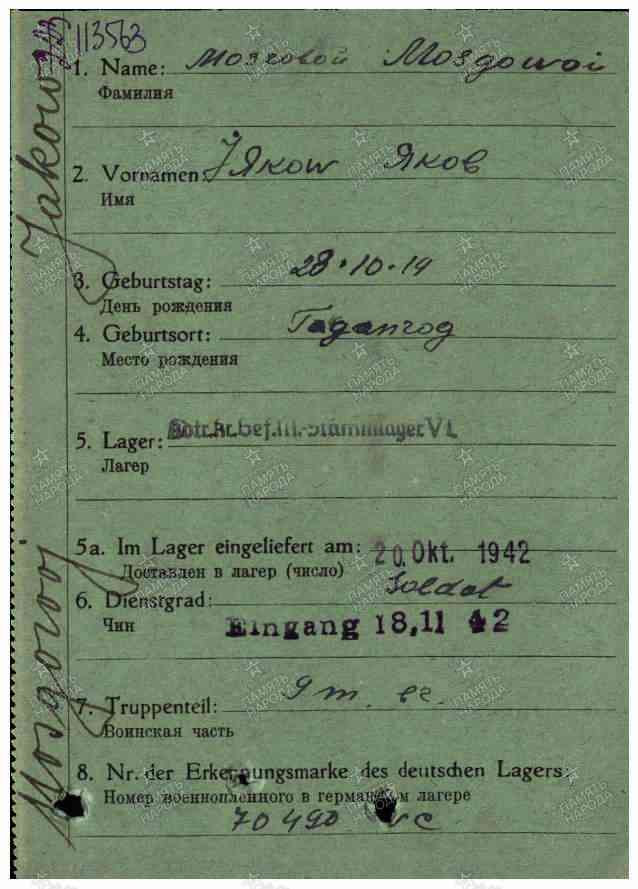 113563
1. Name: Мозговой Mosgowoi
Фамилия
2. Vornamen: Яков
Имя
3. Geburtstag: 28.10.14
День рождения
4. Geburtsort:
Место рождения
5. Lager:
Лагер
5a. Im Lager eingeliefert am: 20. Okt. 1942
Доставлен в лагер (число)
6. Dienstgrad: Soldat
Чин
Eingang 18,11 42
7. Truppenteil:
Воинская часть
8. Nr. der Erkennungsmarke des deutschen Lagers:
Номер военнопленного в германском лагере
70490
Mosgowoj Jakow
ПАМЯТЬ
НАРОДА